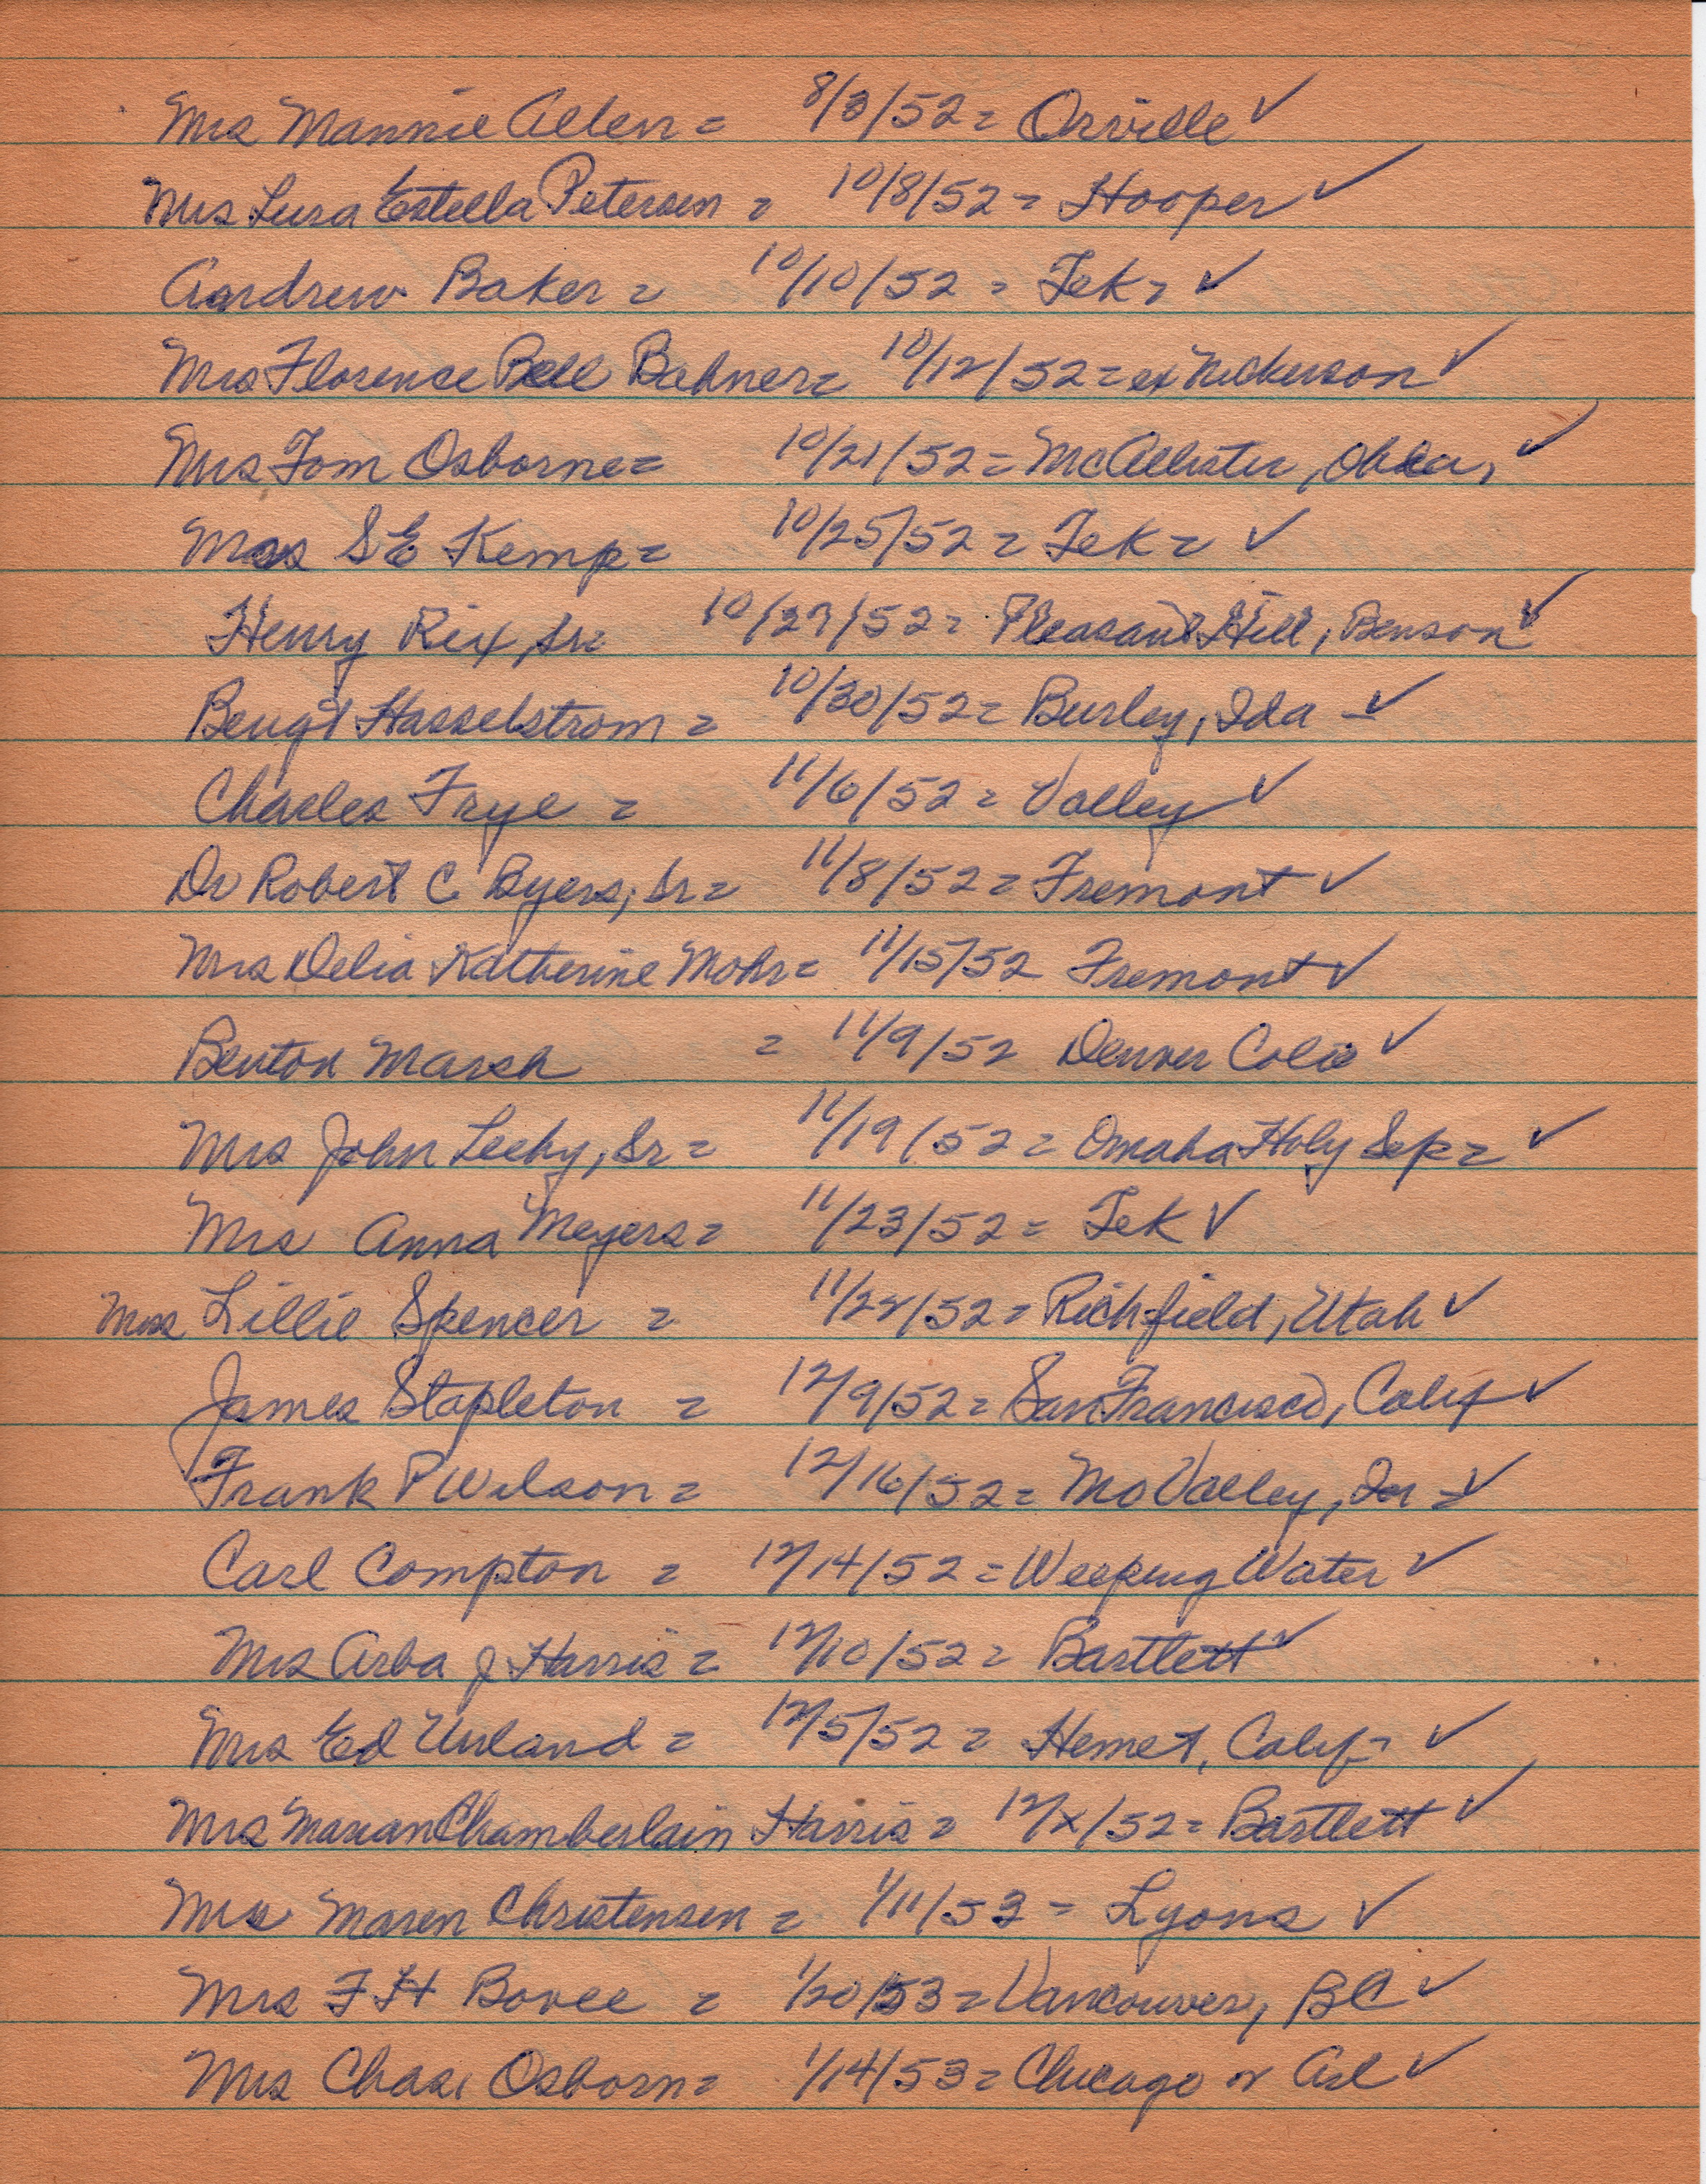 Mrs Mannie Allen = 8/3/52 = Orville ✓
Mrs Lura Estella Petersen = 10/8/52 = Hooper ✓
Aandrew Baker = 10/10/52 = Tek = ✓
Mrs Florence Bell Bahner = 10/12/52 = ex Nickerson ✓
Mrs Tom Osborne = 10/21/52 = McAllister, Okla, ✓
Mrs S E Kemp = 10/25/52 = Tek = ✓
Henry Rix, Sr = 10/27/52 = Pleasant Hill, Benson ✓
Bengt Hasselstrom = 10/30/52 = Burley, Ida - ✓
Charles Frye = 11/6/52 = Valley ✓
Dr Robert C Byers, Sr = 11/8/52 = Fremont ✓
Mrs Delia Katherine Mohr = 11/15/52 Fremont ✓
Benton Marsh = 11/9/52 Denver Colo ✓
Mrs John Leehy, Sr = 11/19/52 = Omaha Holy Sep = ✓
Mrs Anna Meyers = 11/23/52 = Tek ✓
Miss Lillie Spencer = 11/24/52 = Richfield, Utah ✓
James Stapleton = 12/9/52 = San Francisco, Calif ✓
Frank P Wilson = 12/16/52 = Mo Valley, Ia = ✓
Carl Compton = 12/14/52 = Weeping Water ✓
Mrs Arba J Harris = 12/10/52 = Bartlett ✓
Mrs Ed Uhland = 12/5/52 = Hemet, Calif = ✓
Mrs Marian Chamberlain Harris = 12/x/52 = Bartlett ✓
Mrs Maren Christensen = 1/11/53 = Lyons ✓
Mrs F H Bovee = 1/20/53 = Vancouver, BC ✓
Mrs Chas. Osborn = 1/14/53 = Chicago or Arl ✓